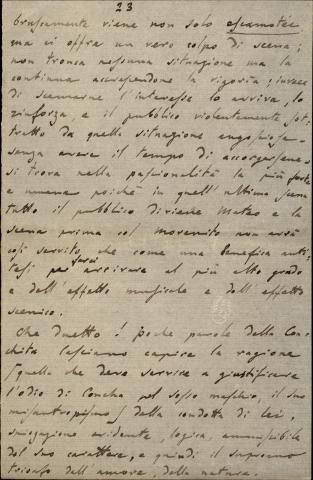 23
bruscamente viene non solo escamotée
ma vi offra un vero colpo di scena;
non tronca nessuna situazione ma la
continua accrescendone la vigoria; invece
di scemarne l'interesse lo avviva, lo
rinforza, e il pubblico violentemente sot-
tratto da quella situazione angosciosa
senza avere il tempo di accorgersene
si trova nella passionalità la più forte
e umana poichè in quell'ultima scena
tutto il pubblico diviene Mateo e la
scena prima col Morenito non avrà
così servito che come una benefica anti-
tesi per farci arrivare al più alto grado
e dell'effetto musicale e dell'effetto
scenico.
Che duetto! poche parole della Con-
chita lasciano capire la ragione
(quella che deve servire a giustificare
l'odio di Concha pel sesso maschio, il suo
misantropismo) della condotta di lei,
spiegazione evidente, logica, ammissibile
del suo carattere, e quindi il supremo
trionfo dell'amore, della natura.